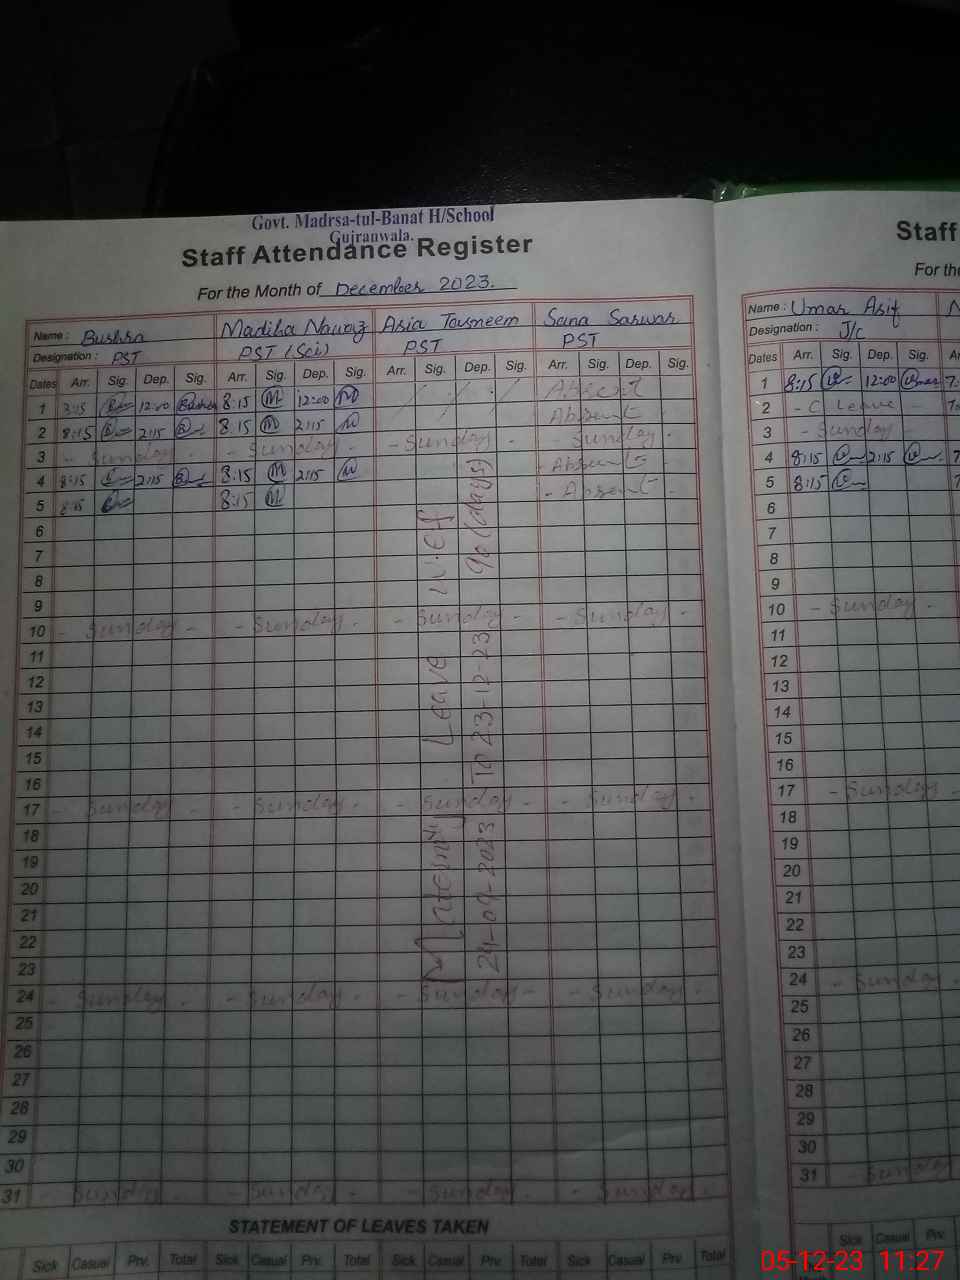 Govt. Madrsa-tul-Banat H/School
Gujranwala.
Staff Attendance Register
For the Month of December 2023.
Name : Bushra Madiha Nawaz Asia Tasneem Sana Sarwar
Designation : PST PST (Sci) PST PST
Dates Arr. Sig. Dep. Sig. Arr. Sig. Dep. Sig. Arr. Sig. Dep. Sig. Arr. Sig. Dep. Sig.
1 8:15 12:00 Bushra 8:15 M 12:00 Absent
2 8:15 2:15 8:15 M 2:15 Absent
3 - Sunday - - Sunday - - Sunday - - Sunday -
4 8:15 2:15 8:15 M 2:15 - Absent -
5 8:15 8:15 M - Absent -
6
7
8
9
10 - Sunday - - Sunday - - Sunday - - Sunday -
11
12
13
14
15
16
17 - Sunday - - Sunday - - Sunday - - Sunday -
18
19
20
21
22
23
24 - Sunday - - Sunday - - Sunday - - Sunday -
25
26
27
28
29
30
31 - Sunday - - Sunday - - Sunday - - Sunday -
Maternity Leave w.e.f
24-09-2023 To 23-12-23 90 (days)
STATEMENT OF LEAVES TAKEN
Sick Casual Prv. Total Sick Casual Prv. Total Sick Casual Prv. Total Sick Casual Prv. Total
Staff
For th
Name : Umar Asif
Designation : J/c
Dates Arr. Sig. Dep. Sig.
1 8:15 12:00 Umar
2 - C Leave -
3 - Sunday -
4 8:15 2:15
5 8:15
6
7
8
9
10 - Sunday -
11
12
13
14
15
16
17 - Sunday -
18
19
20
21
22
23
24 - Sunday -
25
26
27
28
29
30
31 - Sunday
Sick Casual Prv. Total
05-12-23 11:27